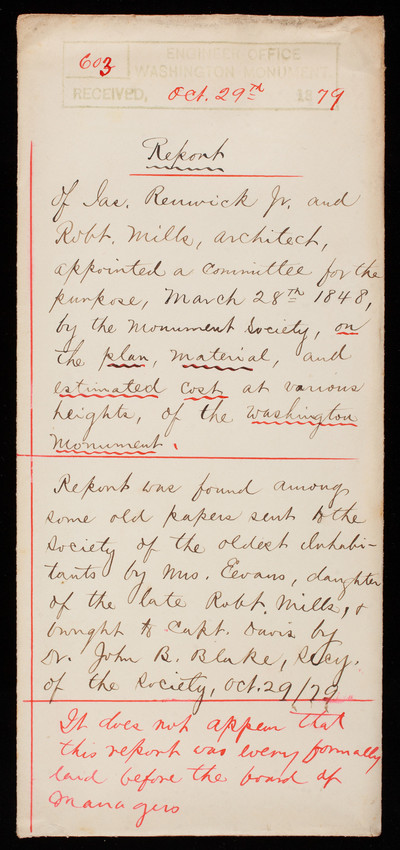 603
ENGINEER OFFICE
WASHINGTON MONUMENT
RECEIVED, Oct. 29th 1879
Report
Of Jas. Renwick Jr. and
Robt. Mills, architect,
appointed a Committee for the
purpose, March 28th 1848,
by the Monument Society, on
the plan, material, and
estimated cost at various
heights, of the Washington
Monument.
Report was found among
some old papers sent to the
Society of the oldest Inhabi-
tants by Mrs. Eevans, daughter
of the late Robt. Mills, &
brought to Capt. Davis by
Dr. John B. Blake, Secy.
of the Society, Oct. 29/79
It does not appear that
this report was every formally
laid before the board of
Managers